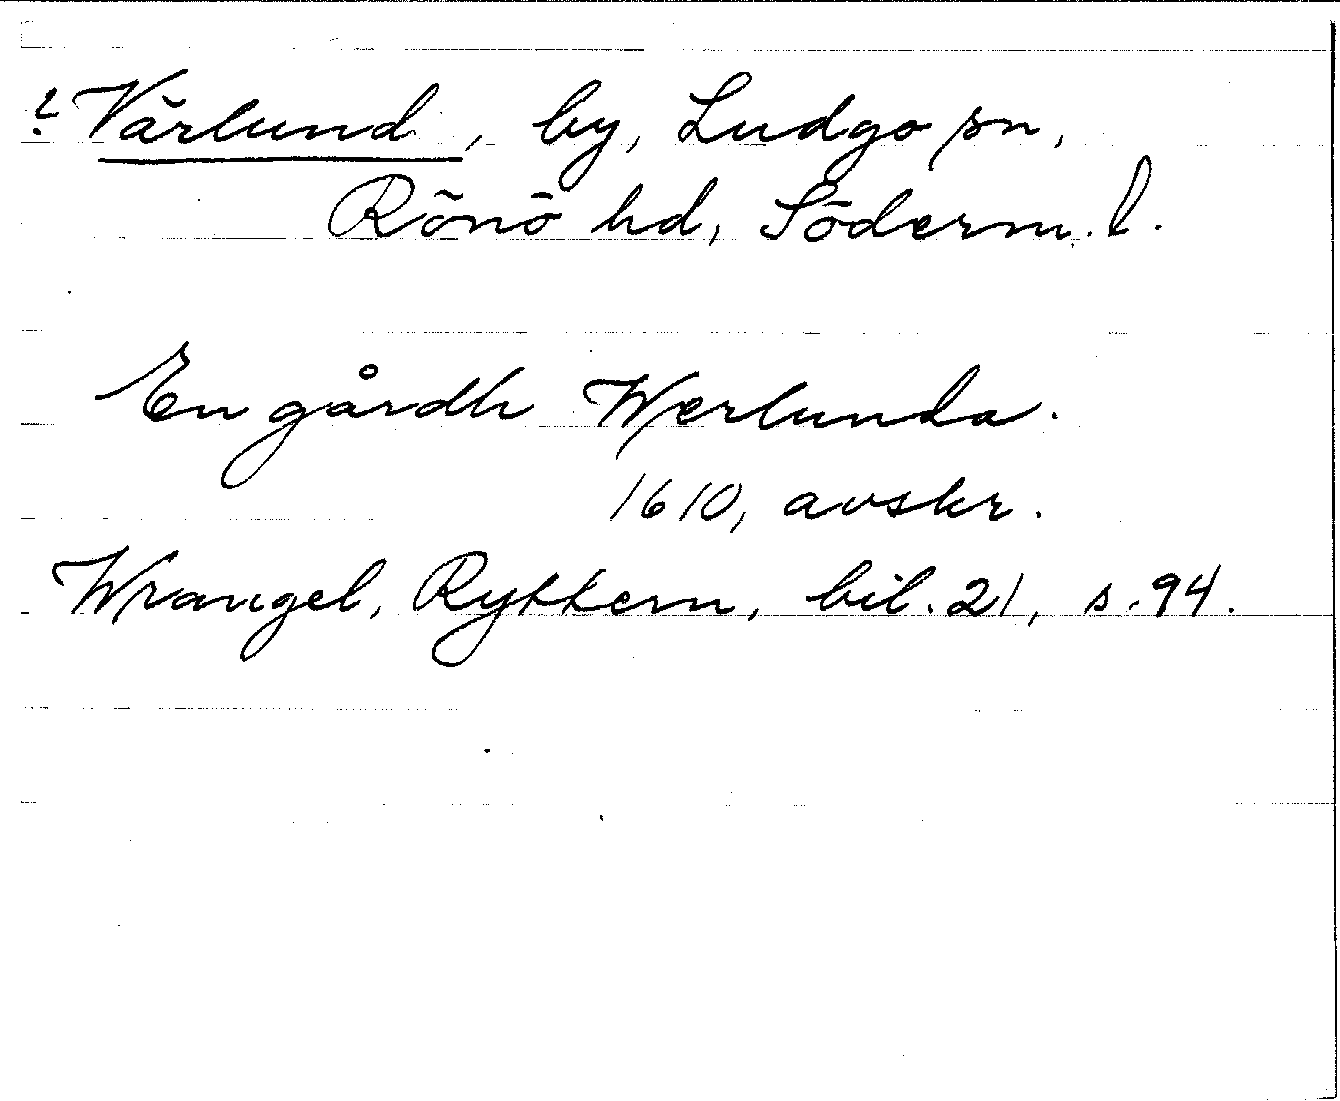 ? Värlund, by, Ludgo sn,
Rönö hd, Söderm. l.
En gårdh Werlunda.
1610, avskr.
Wrangel, Ryttern, bil. 21, s. 94.